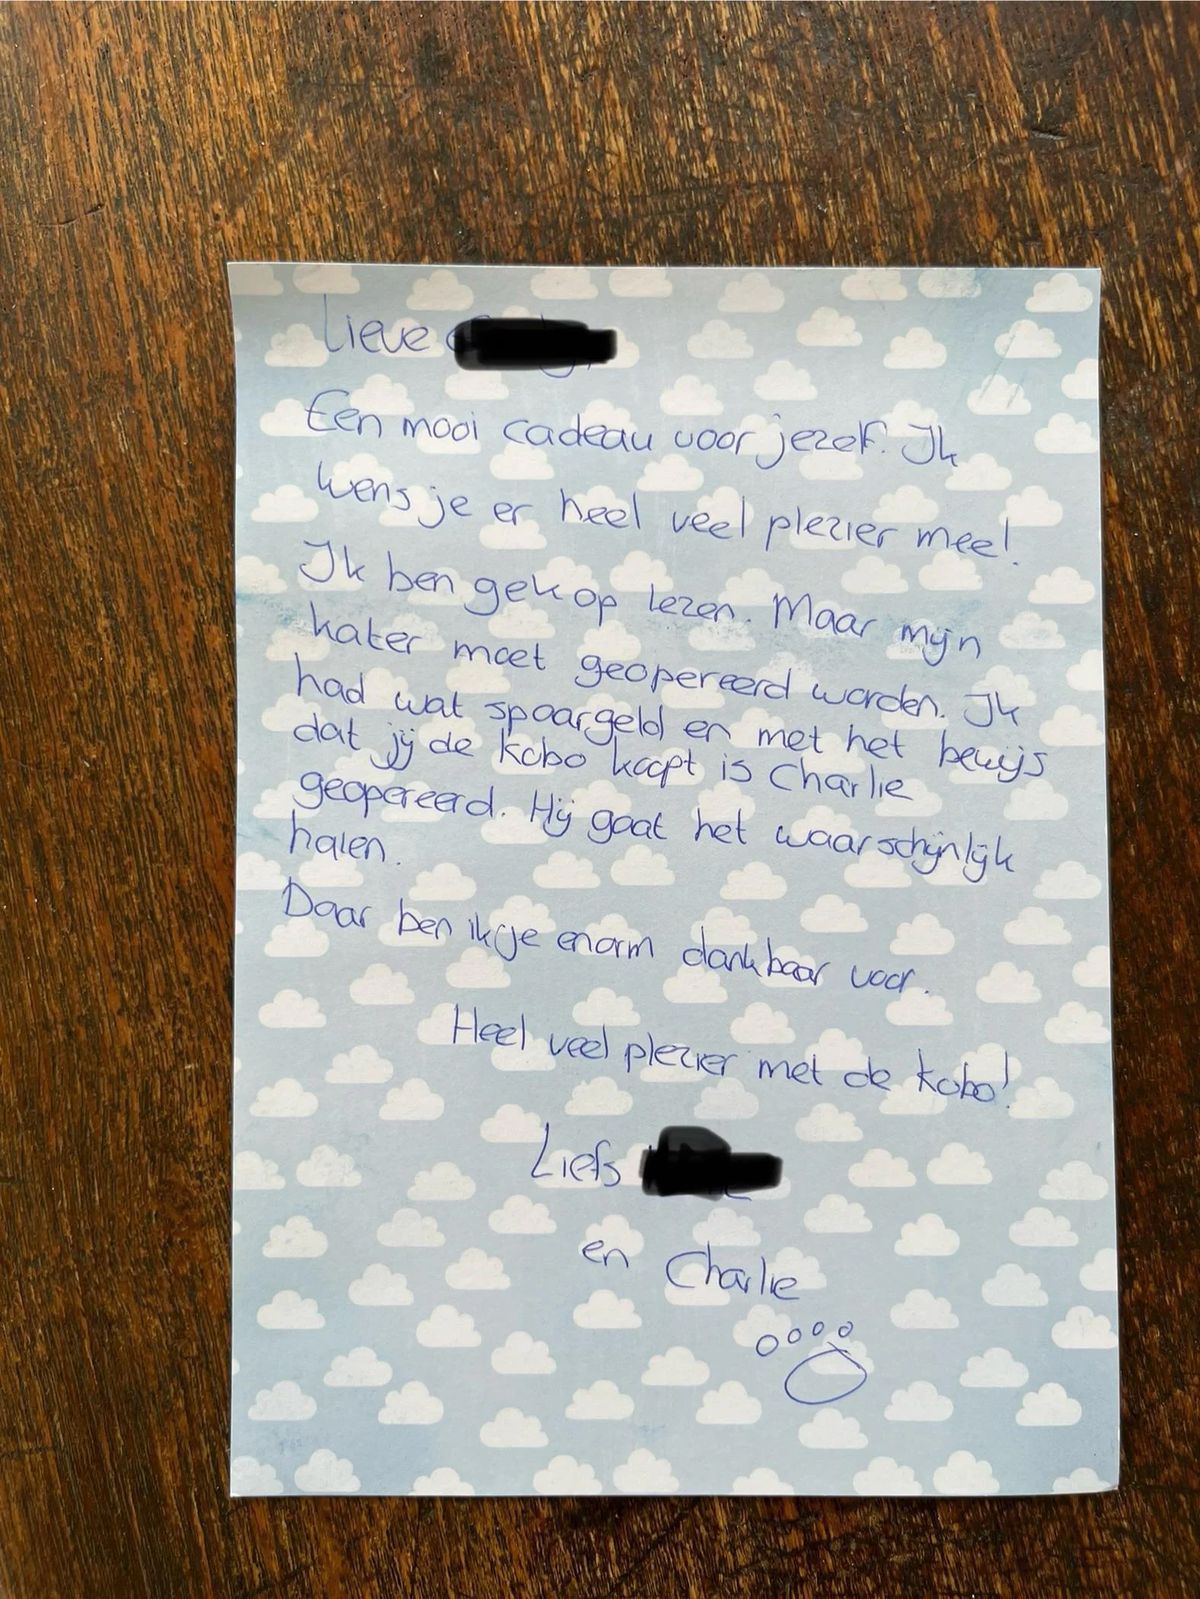 Lieve
Een mooi cadeau voor jezelf. Ik
wens je er heel veel plezier mee!
Ik ben gek op lezen. Maar mijn
kater moet geopereerd worden. Ik
had wat spaargeld en met het bewijs
dat jij de kobo koopt is Charlie
geopereerd. Hij gaat het waarschijnlijk
halen.
Daar ben ik je enorm dankbaar voor.
Heel veel plezier met de kobo!
Liefs
en Charlie